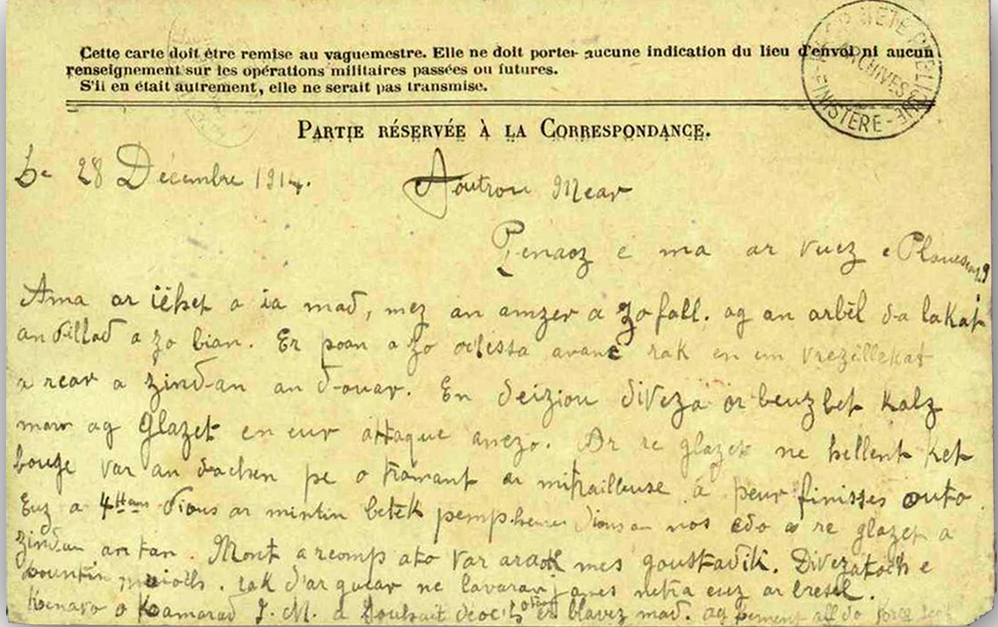 Cette carte doit être remise au vaguemestre. Elle ne doit porter aucune indication du lieu d'envoi ni aucun
renseignement sur les opérations militaires passées ou futures.
S'il en était autrement, elle ne serait pas transmise.
ARCHIVES
FINISTÈRE
PARTIE RÉSERVÉE À LA CORRESPONDANCE.
Le 28 Décembre 1914. Aoutrou Mear
Penaoz e ma ar vuez e
Ama ar iëhet a ia mad, mez an amzer a zo fall. ag an arbel da lakat
an dillad a zo bian. Er poan a zo avanc rak en em vrezellekat
a rear a zindan an douar. En deiziou diveza or beuz bet kalz
maro ag Glazet en eur attaque anezo. Ar re glazet ne hellent ket
bouge var an dachen pe o mitrailleuse a peur finisses outo
Euz a 4 Dious ar mintin betek pemp heur dious an nos edo a re glazet a
zindan an tan. Mont a reomp ato var araok mes goustadik. Divezatoch e
rak d'ar guear ne lavaran james netra euz ar bresel.
Kenavo o Kamarad J. M. a Souhait deoc'h blavez mad. ag